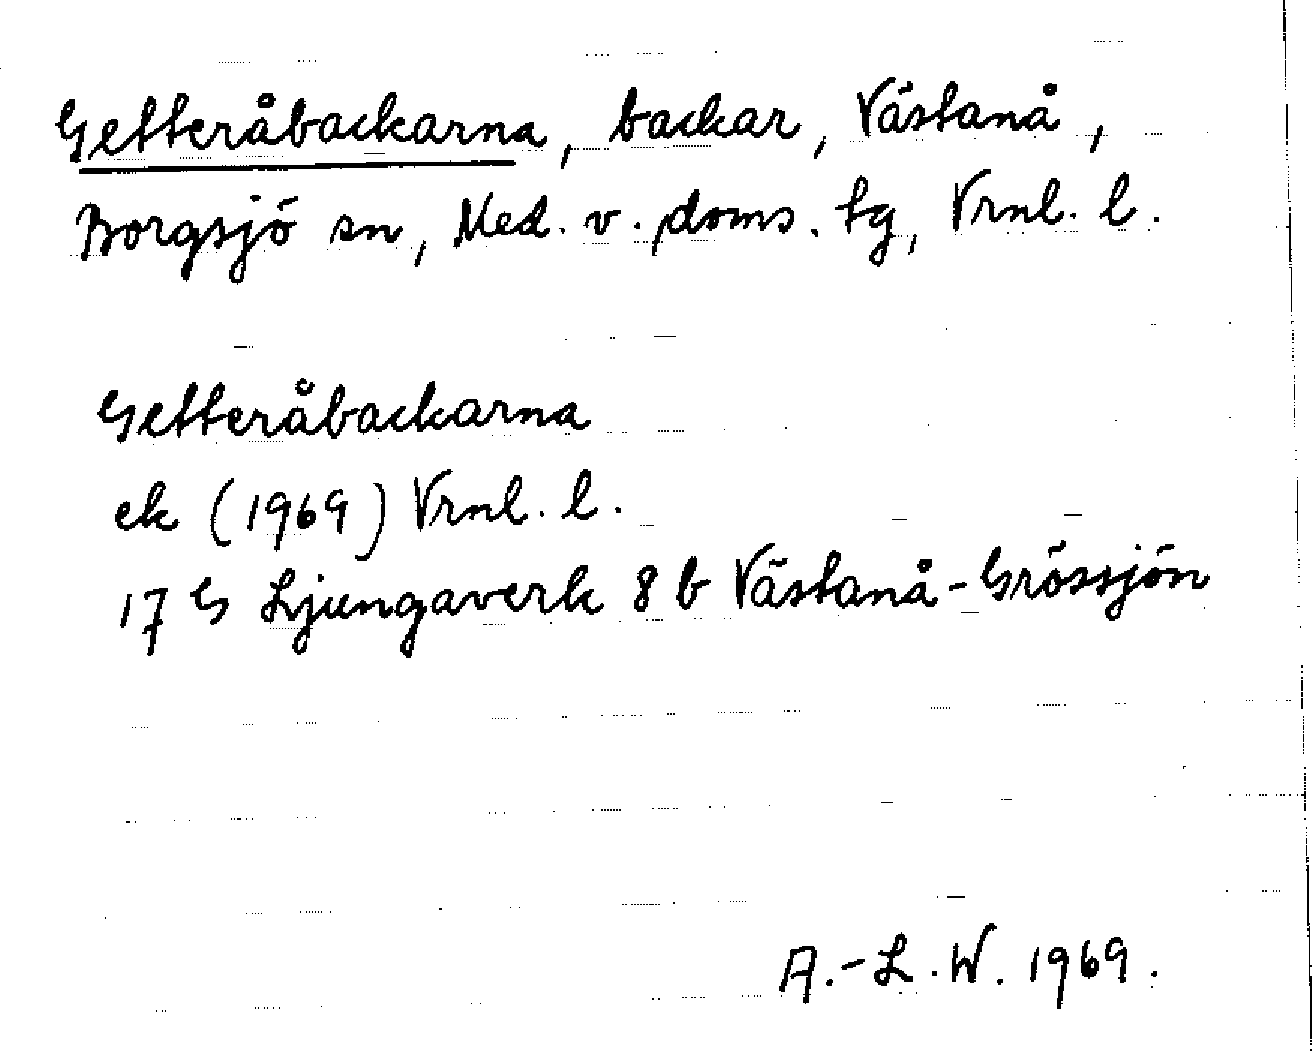 Getteråbackarna, backar, Västanå,
Borgsjö sn, Med. v. doms. tg, Vrnl. l.
Getteråbackarna
ek (1969) Vrnl. l.
17 G Ljungaverk 8 b Västanå-Grössjön
A.-L. W. 1969.